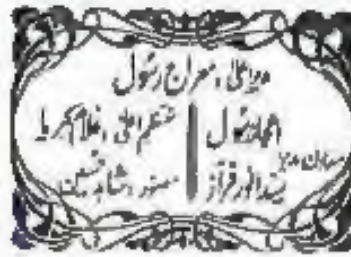 مدیراعلیٰ، معراج رسول
اعجاز رسول | منتظم اعلیٰ، غلام کبریا
معاون مدیر سید انور فراز | مصور، شاہد حسین